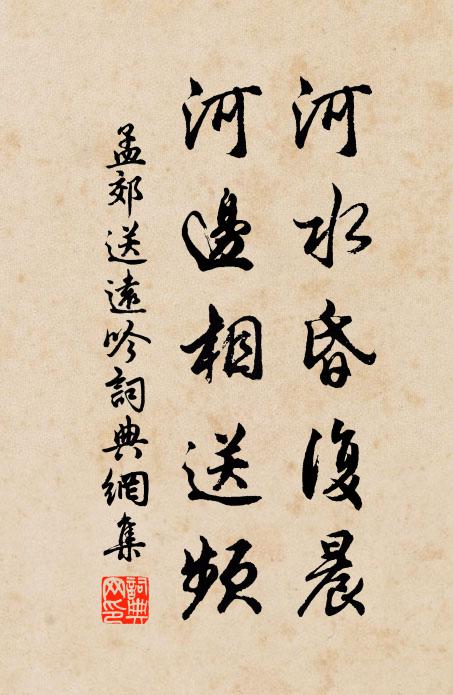 河水昏復晨
河邊相送頻
孟郊送遠吟詞典網集
詞典網印